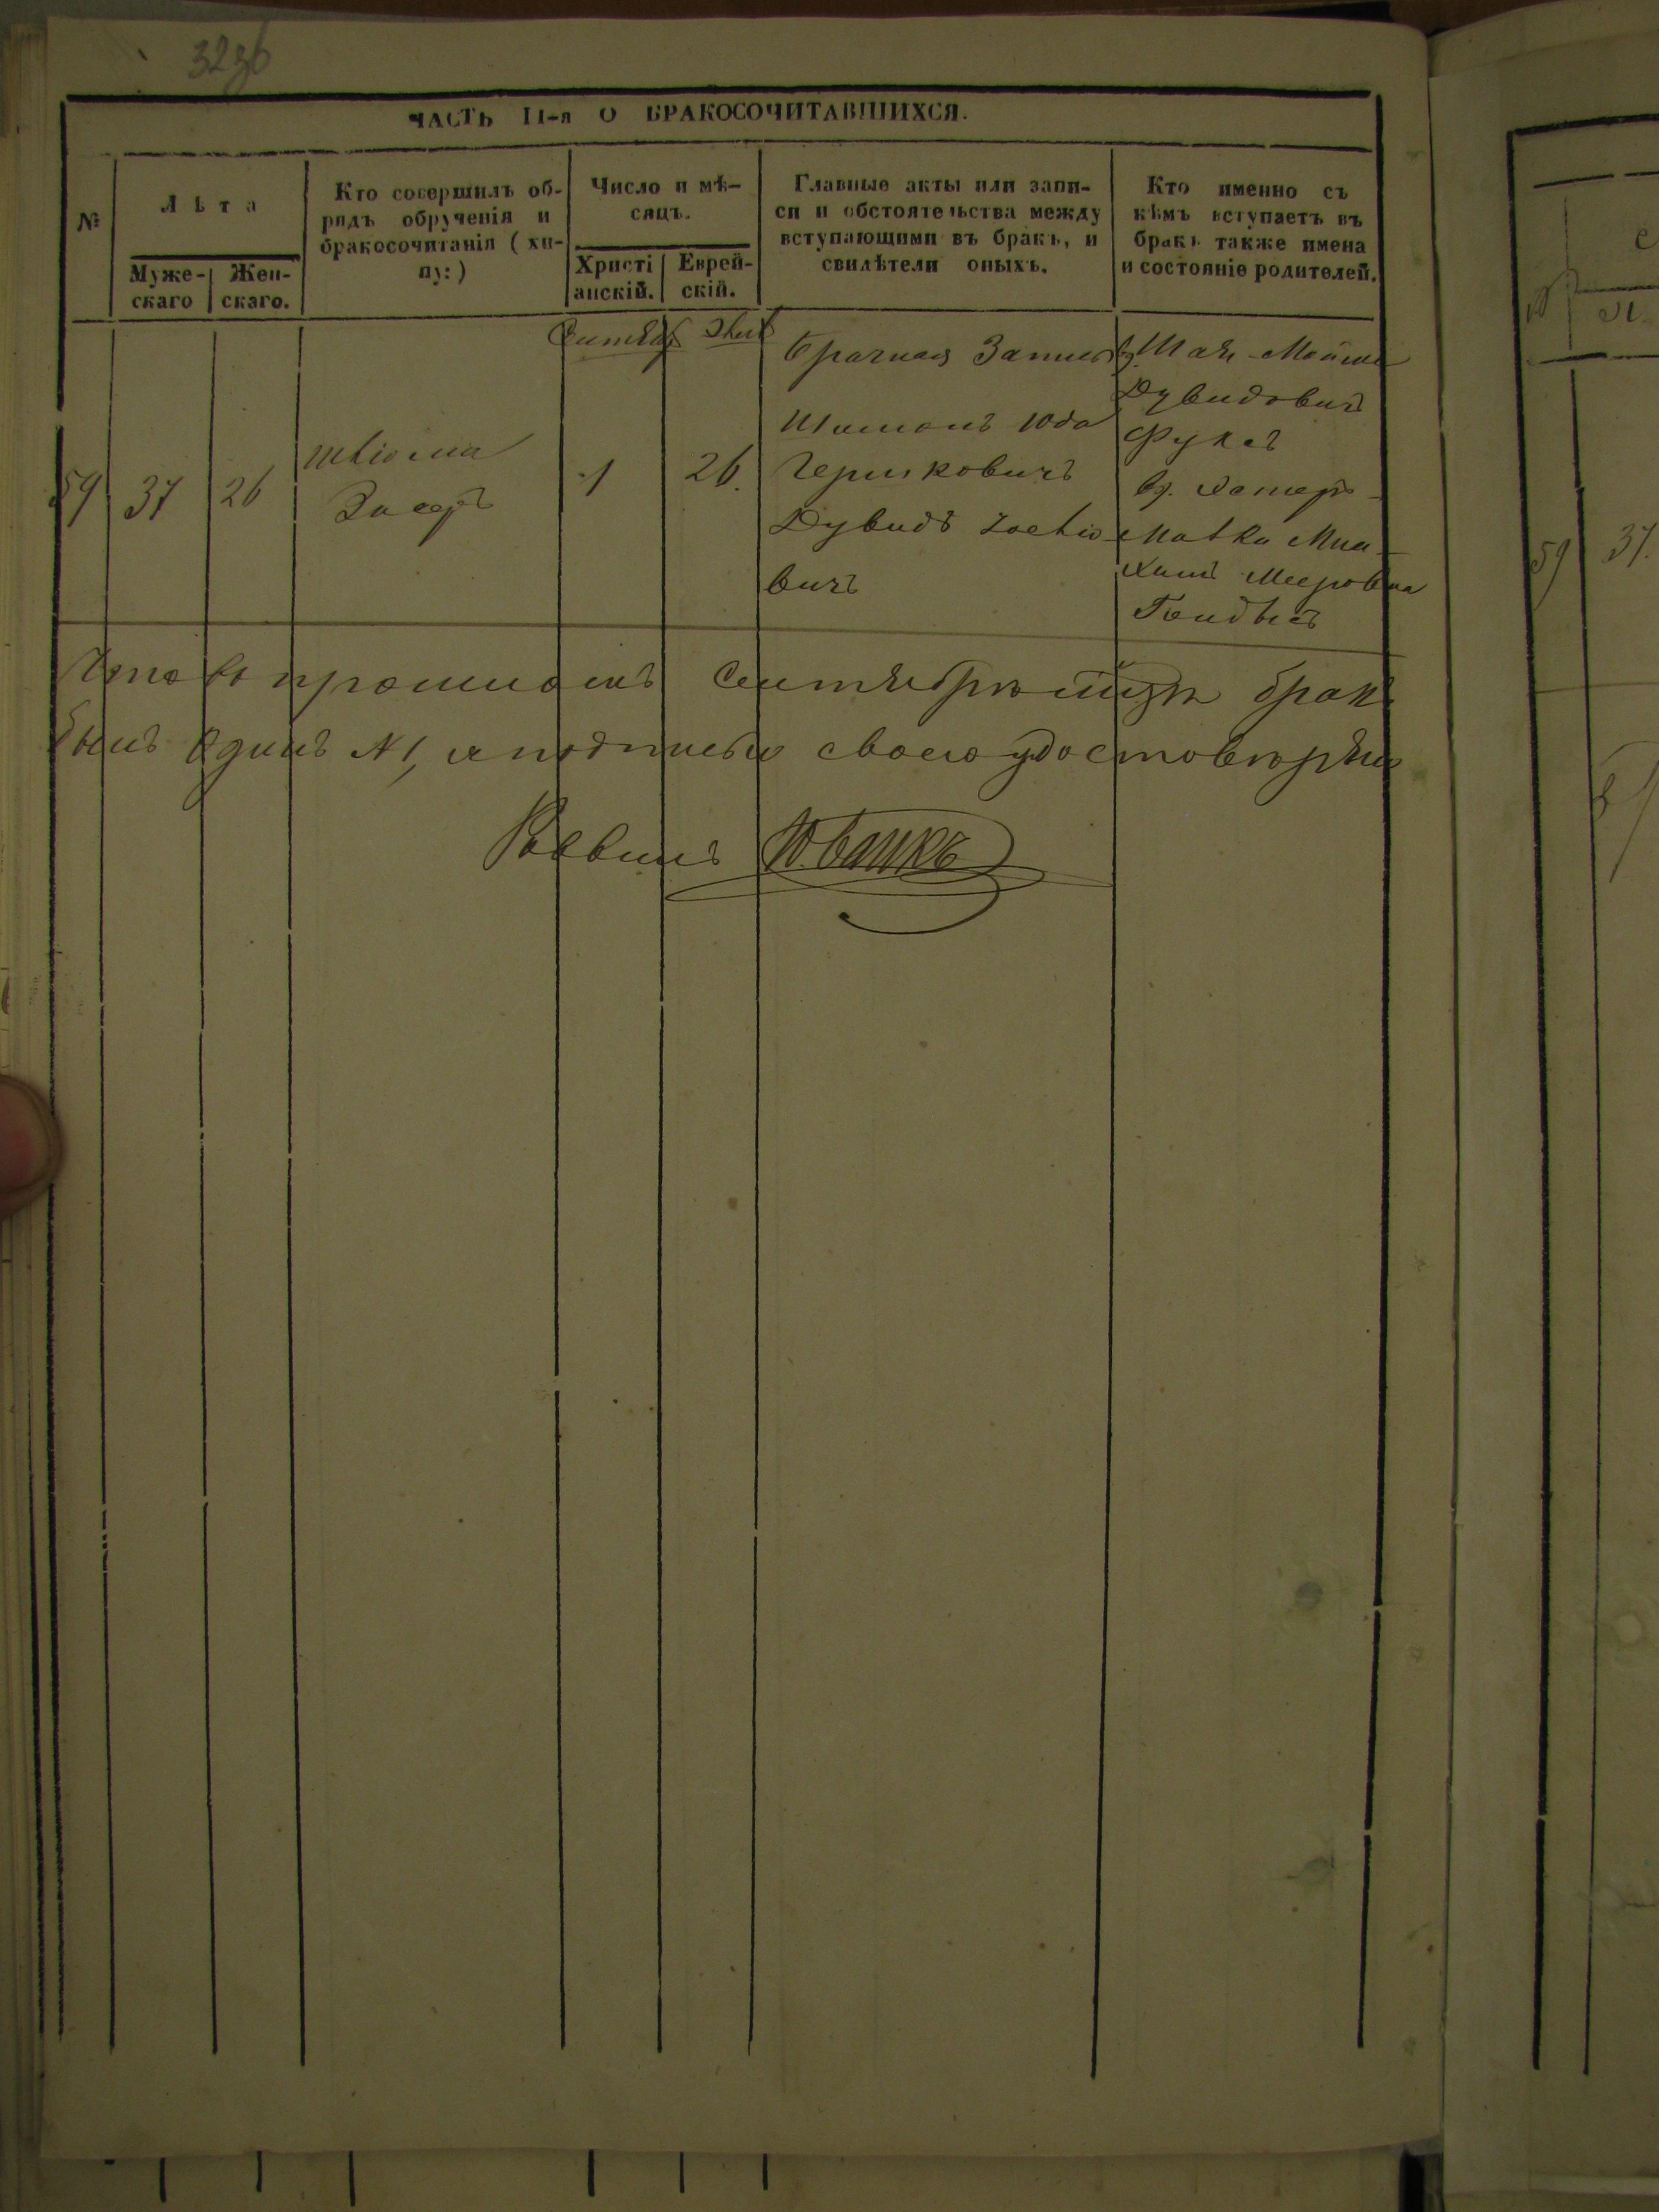 329б
ЧАСТЬ II-я О БРАКОСОЧИТАВШИХСЯ.
№
Лѣта
Муже-
скаго
Жен-
скаго.
Кто совершилъ об-
рядъ обрученія и
бракосочитанія (ху-
пу:)
Число и мѣ-
сяцъ.
Христі
анскій.
Еврей-
скій.
Главные акты или запи-
си и обстоятельства между
вступающими въ бракъ, и
свидѣтели оныхъ.
Кто именно съ
кѣмъ вступаетъ въ
бракъ также имена
и состояніе родителей.
59
37
26
Засеръ
1
26.
Брачная Запись
Шимонъ Юда
Гершковичъ
Дувидъ
вичъ
Шая-Мойше
Дувидовичъ
Фуксъ
Эстеръ-
Малка
Мееровна
Что въ прошломъ Сентябрѣ мѣсяцѣ бракъ
былъ Одинъ №1, я подписью своею удостовѣряю
Раввинъ
59
37.